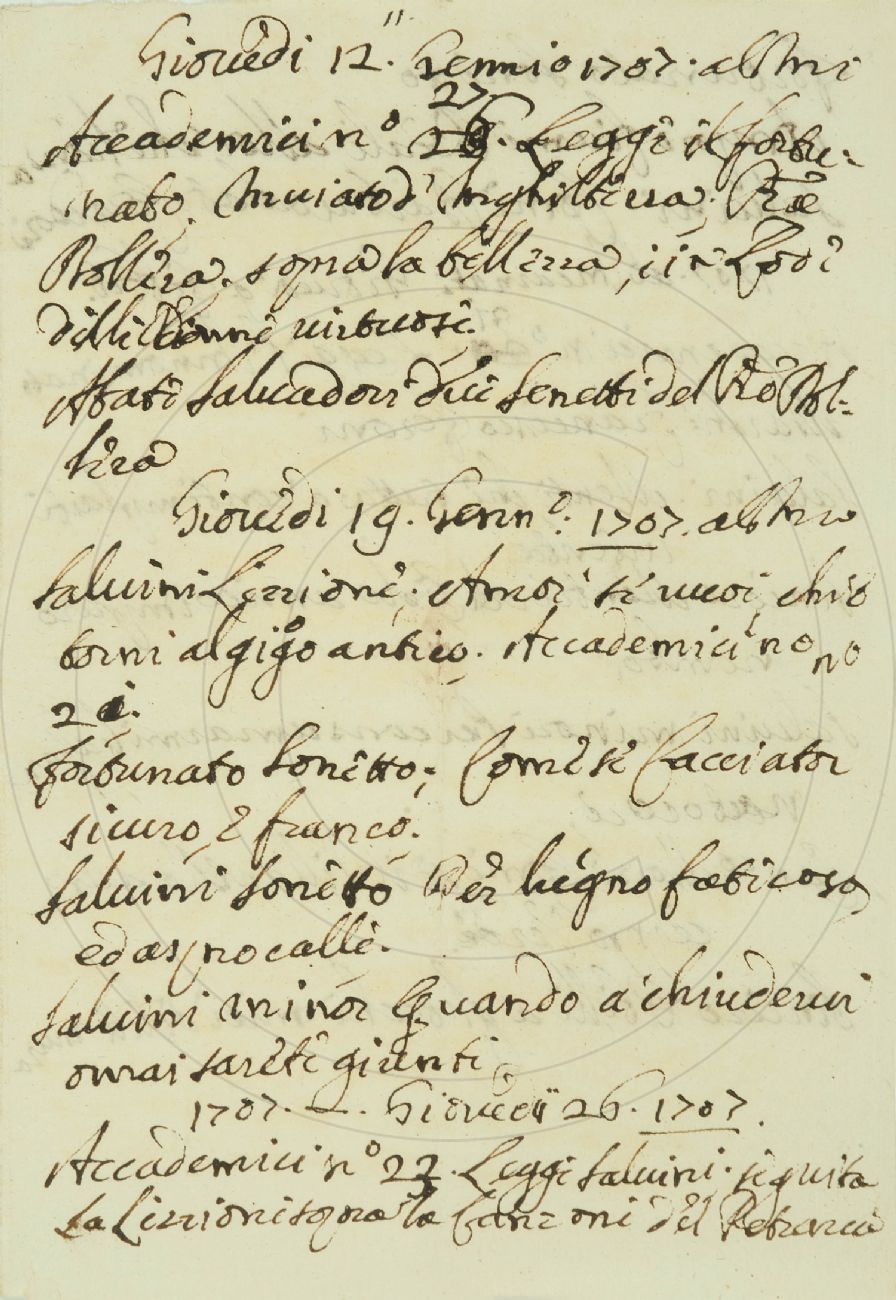 Giovedi 12. Gennaio 1707.
27
Accademici nº 26. Legge il fortu-
nato. Inviato d'Inghilterra.
Rolli. sopra la bellezza, in Lode
delle Donne virtuose.
Abate Salvadori due Sonetti del
Giovedi 19. Genn.º 1707.
Salvini Lezzione. Amor se vuoi, ch'io
torni al giogo antico. Accademici nº
21.
fortunato Sonetto; Come se Cacciator
sicuro, e franco.
Salvini Sonetto Per legno faticoso
ed aspro calle.
Salvini minor Quando a chiudervi
omai sarete giunti.
1707. — . Giovedi 26. 1707.
Accademici nº 22. Legge Salvini. seguita
la Lezzione sopra la Canzone del Petrarca